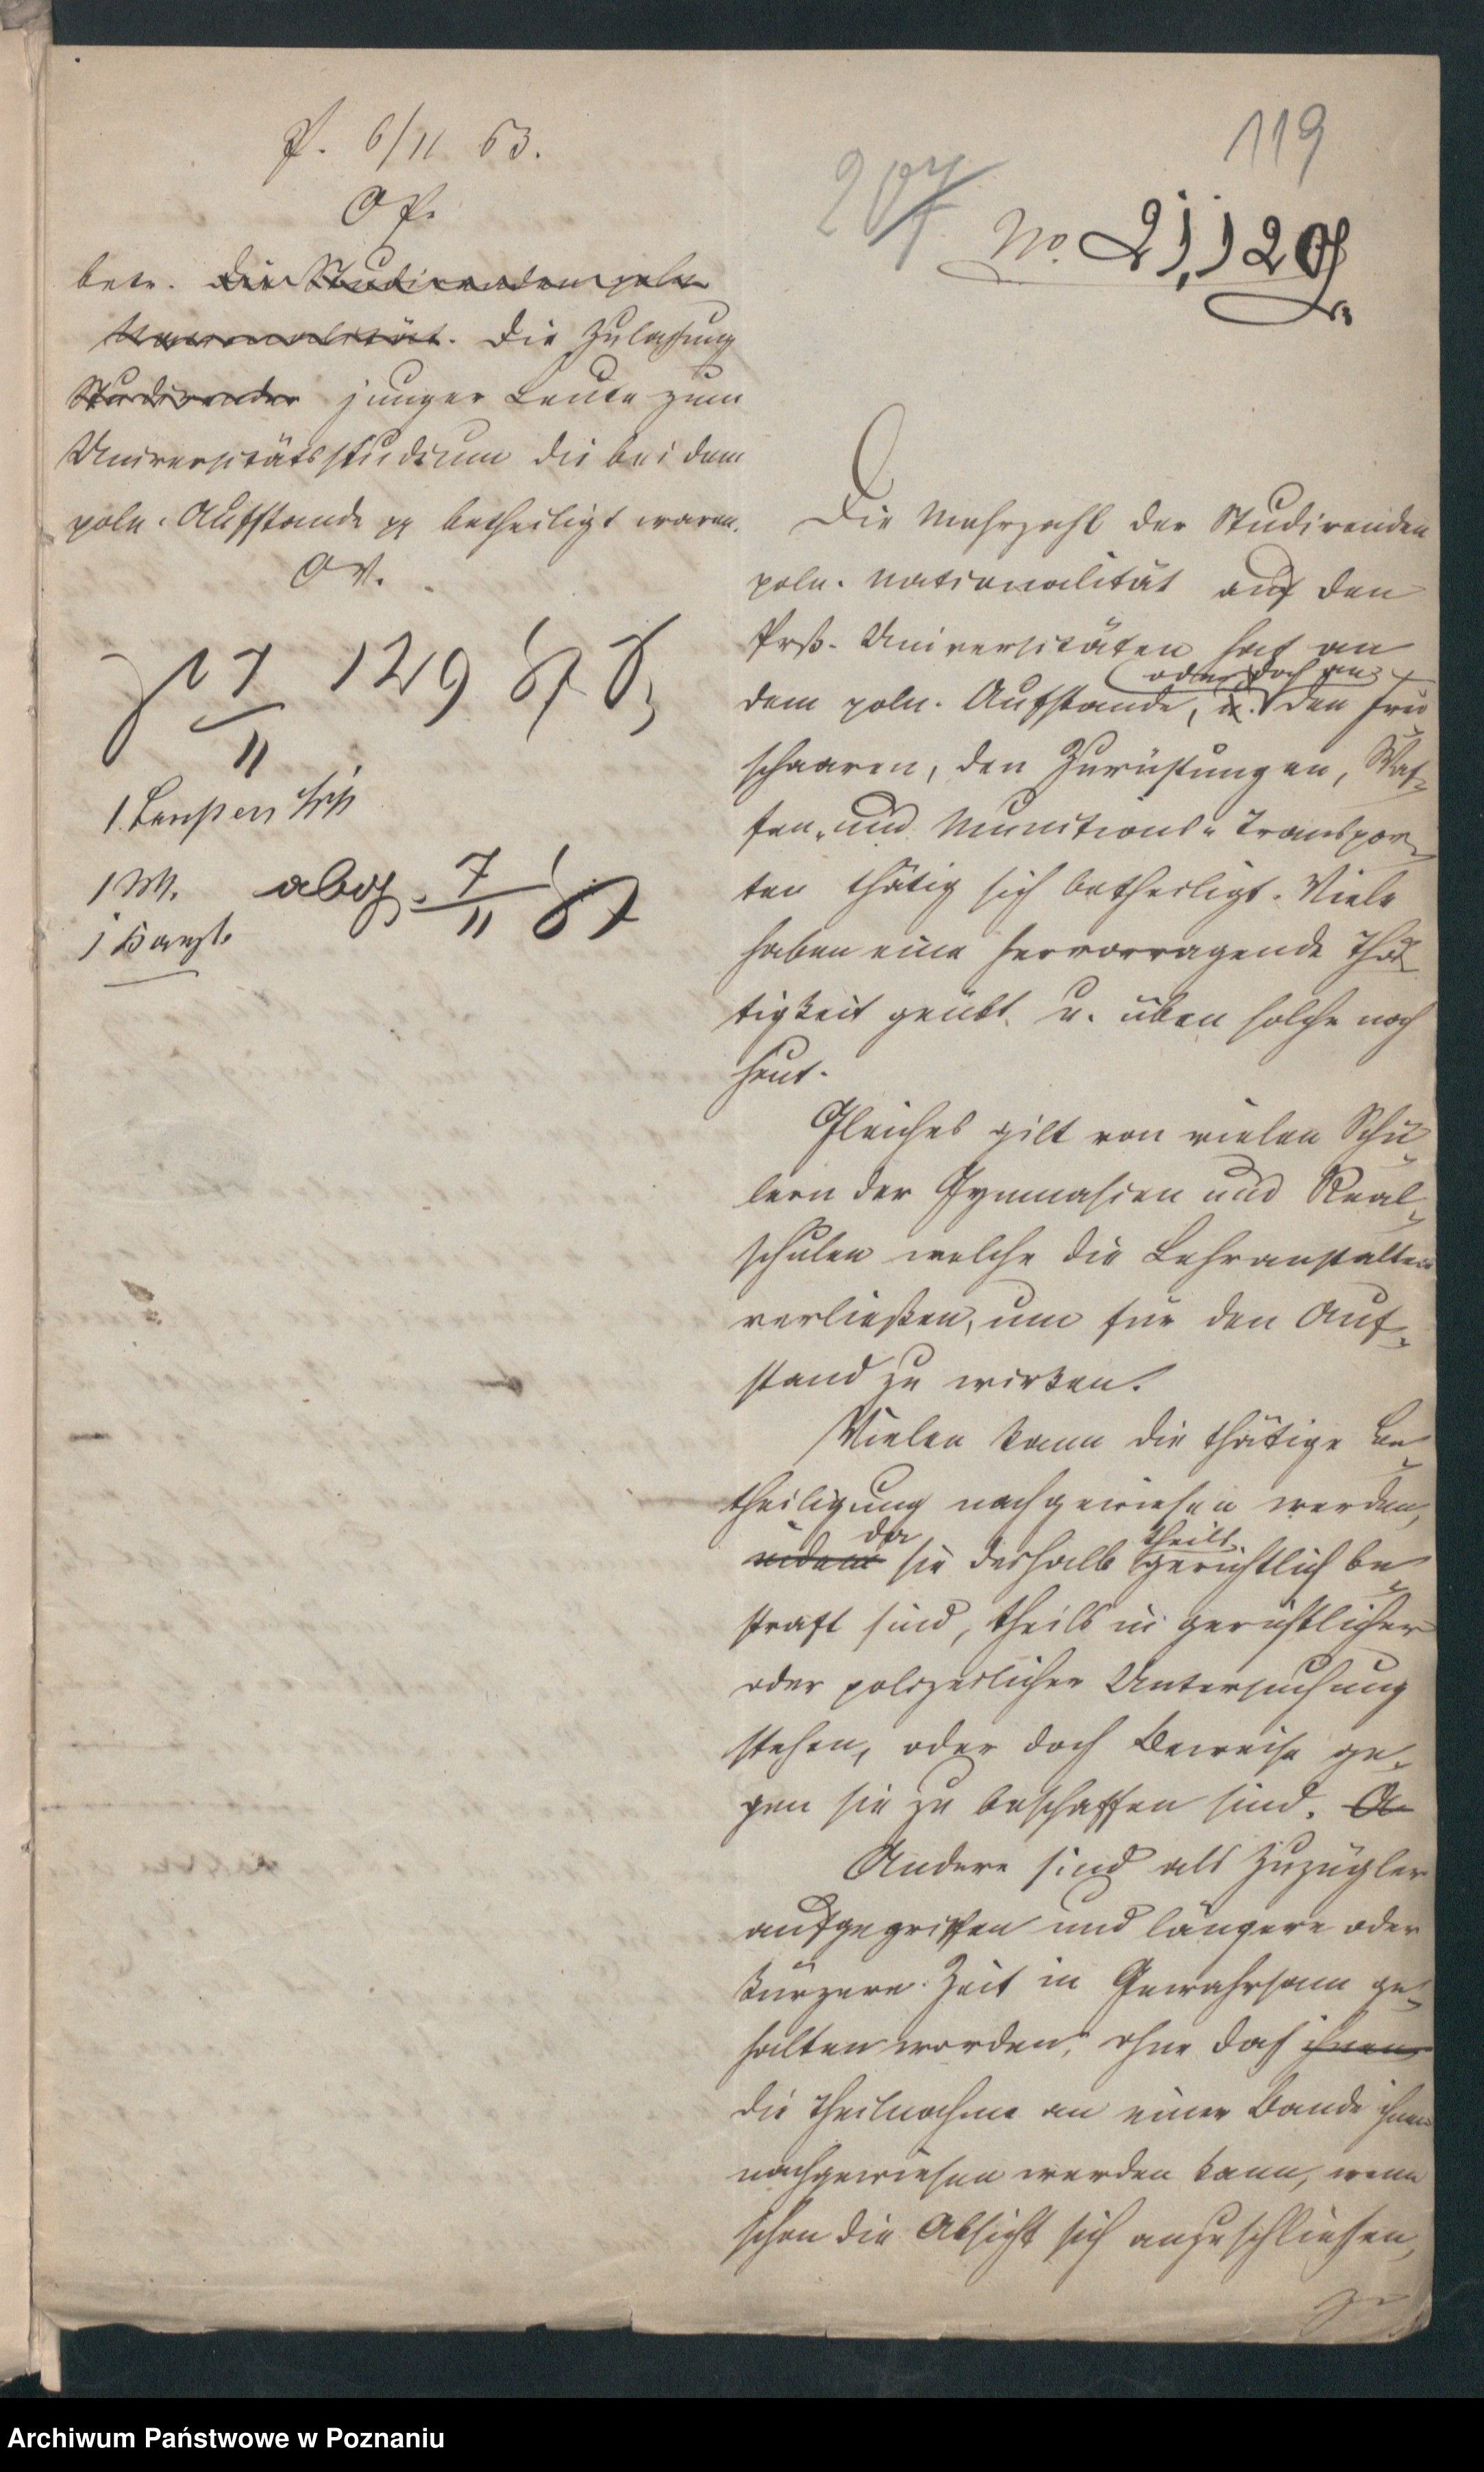 P. 6/11 63.
O P.
betr. die Studirenden poln
Nationalität. Die Zulassung
Studirender junger Leute zum
Universitätsstudium die bei dem
poln. Aufstande pp betheiligt waren.
119
No. 21,120
7/11 129
1 M. abg. 7/11
1 Kanzl.
Die Mehrzahl der Studirenden
poln. Nationalität auf den
Prß. Universitäten hat an
oder doch an
dem poln. Aufstande, u. den Frei
schaaren, den Zurüstungen, Waf-
fen- und Munitions-Transpor-
ten thätig sich betheiligt. Viele
haben eine hervorragende Thä-
tigkeit geübt u. üben solche noch
heut.
Gleiches gilt von vielen Schü-
lern der Gymnasien und Real-
schulen welche die Lehranstalten
verließen, um für den Auf-
stand zu wirken.
Vielen kann die thätige Be-
theiligung nachgewiesen werden,
da theils
indem sie deshalb gerichtlich be-
straft sind, theils in gerichtlicher
oder polizeilicher Untersuchung
stehen, oder doch Beweise ge-
gen sie zu beschaffen sind. A
Andere sind als Zuzügler
aufgegriffen und längere oder
kürzere Zeit in Gewahrsam ge-
halten worden, ohne daß ihnen
die Theilnahme an einer Bande ihnen
nachgewiesen werden kann, wenn
schon die Absicht sich anzuschließen,
zu
Archiwum Państwowe w Poznaniu